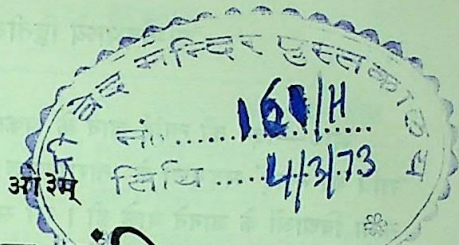 श्री वेद मन्दिर पुस्तकालय
नं. ........ 161/H ........
तिथि ..... 4/3/73
ओ३म्